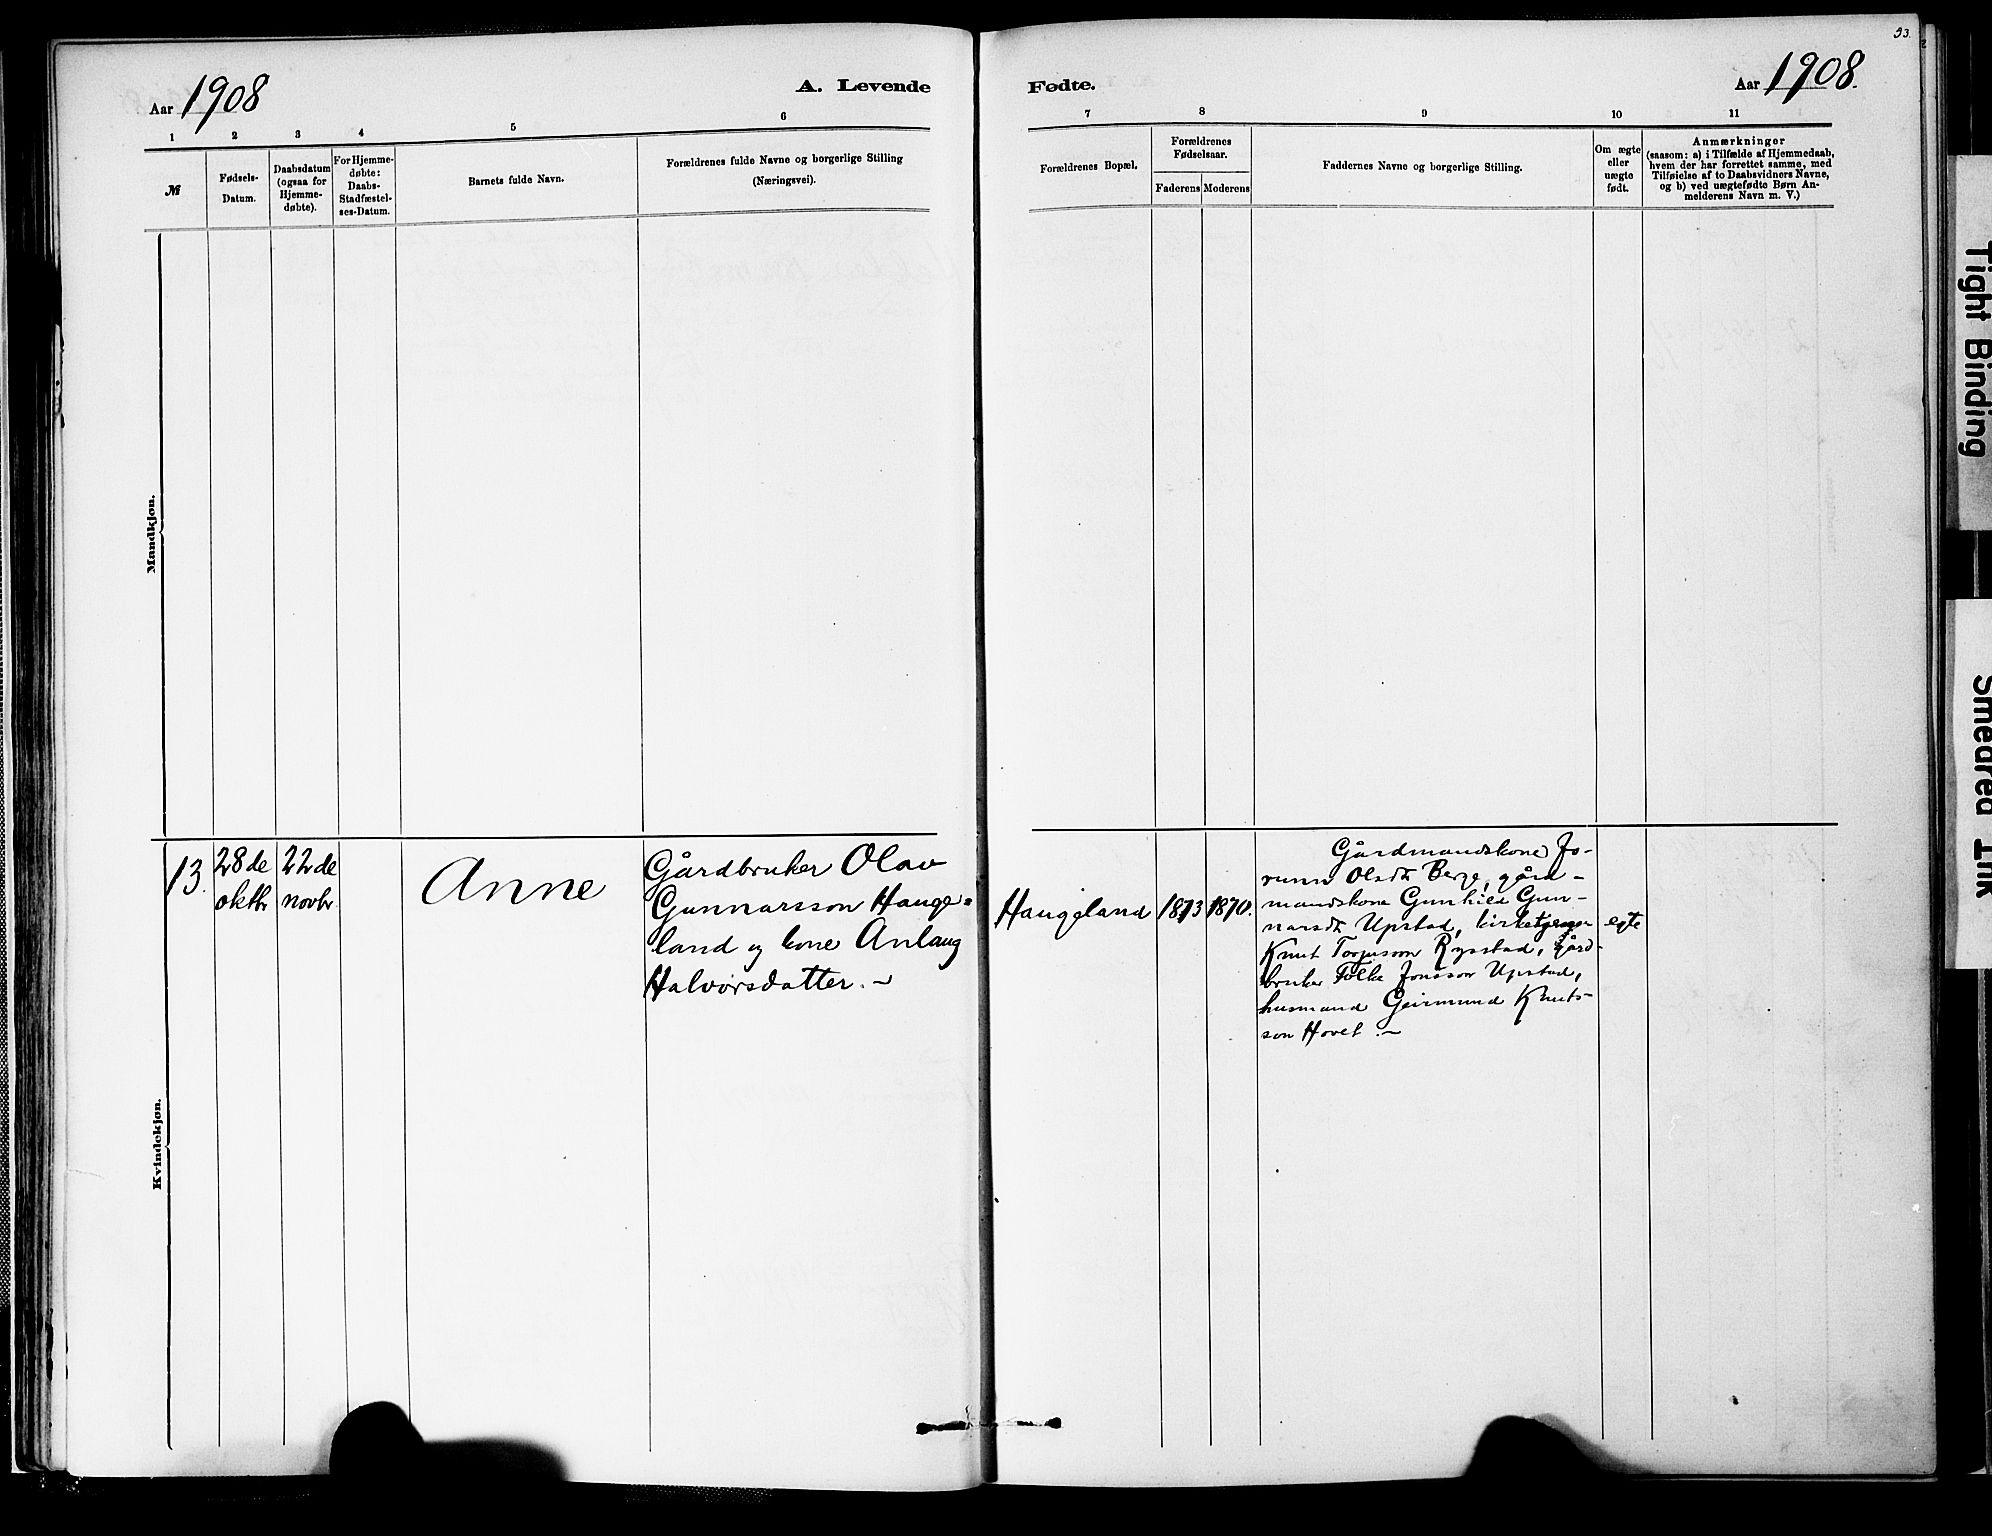 53.
Aar 1908
A. Levende
Fødte.
Aar 1908.
1
2
3
4
5
6
7
8
9
10
11
№
Fødsels-
Datum.
Daabsdatum
(ogsaa for
Hjemme-
døbte).
For Hjemme-
døbte:
Daabs-
Stadfæstel-
ses-Datum.
Barnets fulde Navn.
Forældrenes fulde Navne og borgerlige Stilling
(Næringsvei).
Forældrenes Bopæl.
Forældrenes
Fødselsaar.
Faderens
Moderens
Faddernes Navne og borgerlige Stilling.
Om ægte
eller
uægte
født.
Anmærkninger
(saasom: a) i Tilfælde af Hjemmedaab,
hvem der har forrettet samme, med
Tilføielse af to Daabsvidners Navne,
og b) ved uægtefødte Børn An-
melderens Navn m. V.)
Mandkjøn.
Kvindekjøn.
13.
28de
oktbr
22de
novbr
Anne
Gårdbruker Olav
Gunnarsson Hauge-
land og kone Anlaug
Halvorsdatter. -
Haugeland
1873
1870.
Gårdmandskone Jo-
runn Olsdtr Berge, gård-
mandskone Gunhild Gun-
narsdtr Upstad, kirketjener
Knut Torjusson Rysstad, gård-
bruker Folke Jonsson Upstad,
husmand Geirmund Knuts-
son Hovet. -
egte
Tight Binding
Smeared Ink